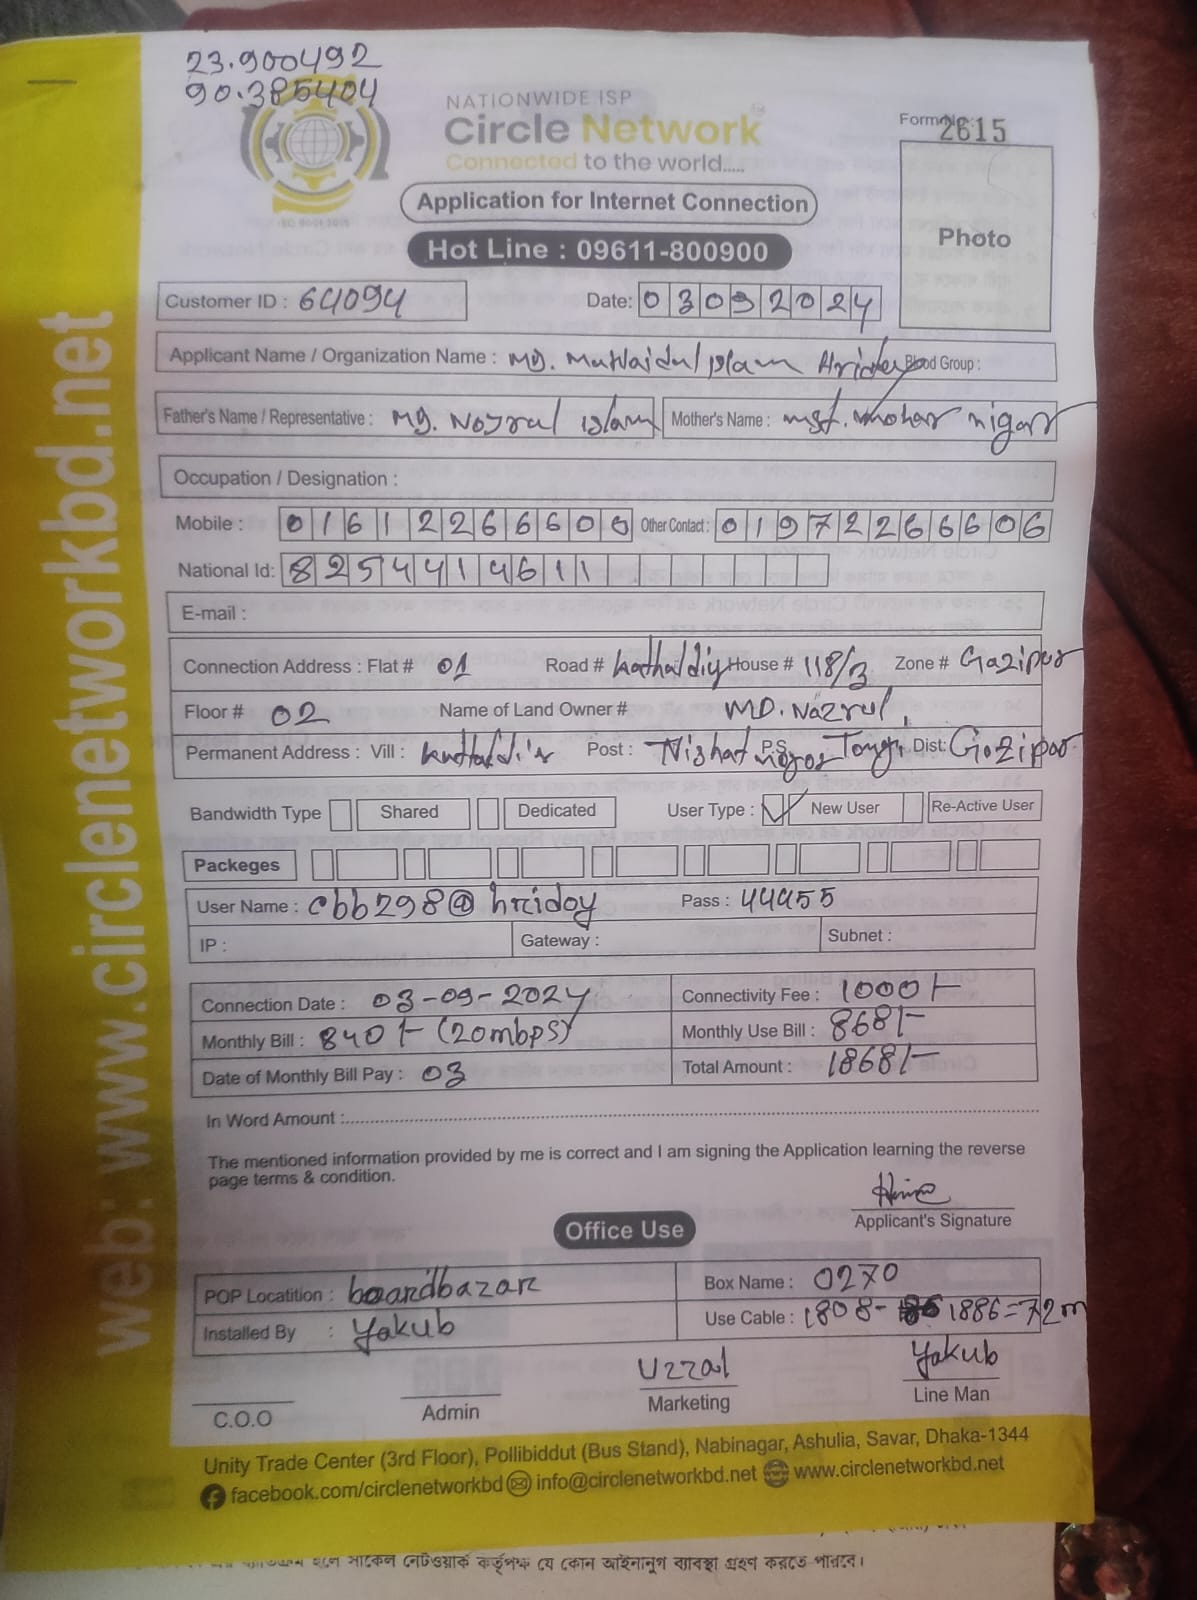 23.900492
90.385404
NATIONWIDE ISP
Circle Network
Connected to the world.....
Form No: 2615
Application for Internet Connection
Photo
Hot Line : 09611-800900
Customer ID : 64094 Date: 03092024
Applicant Name / Organization Name : MD. Islam Blood Group :
Father's Name / Representative : MD. Nozrul islam Mother's Name : mst. mohar nigar
Occupation / Designation :
Mobile : 01612266606 Other Contact : 01972266606
National Id: 8254414611
E-mail :
Connection Address : Flat # 01 Road # kathaldiy House # 118/3 Zone # Gazipur
Floor # 02 Name of Land Owner # MD. Nazrul
Permanent Address : Vill : Post : Nishat nogor P.S Tongi Dist: Gazipur
Bandwidth Type Shared Dedicated User Type : New User Re-Active User
Packeges
User Name : cbb298@hridoy Pass : 44455
IP : Gateway : Subnet :
Connection Date : 03-09-2024 Connectivity Fee : 1000/-
Monthly Bill : 840/- (20mbps) Monthly Use Bill : 868/-
Date of Monthly Bill Pay : 03 Total Amount : 1868/-
In Word Amount :
The mentioned information provided by me is correct and I am signing the Application learning the reverse
page terms & condition.
Applicant's Signature
Office Use
POP Locatition : boardbazar Box Name : 0270
Installed By : Yakub Use Cable : 1808- 1886=72m
Uzzal Yakub
C.O.O Admin Marketing Line Man
Unity Trade Center (3rd Floor), Pollibiddut (Bus Stand), Nabinagar, Ashulia, Savar, Dhaka-1344
facebook.com/circlenetworkbd info@circlenetworkbd.net www.circlenetworkbd.net
web: www.circlenetworkbd.net
হলে সার্কেল নেটওয়ার্ক কর্তৃপক্ষ যে কোন আইনানুগ ব্যাবস্থা গ্রহণ করতে পারবে।